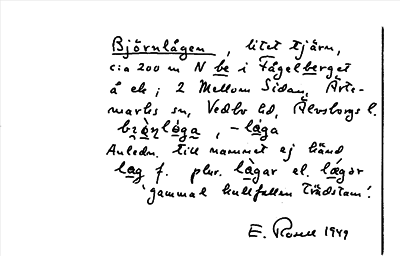 Björnlågen, litet tjärn,
cia 200 m N be i Fågelberget
å ek; 2 Mellom Sidan, Årte-
marks sn, Vedbo hd, Älvsborgs l.
bjö̀ṇlåga, -låga
Anledn. till namnet ej känd
låg f. plur. lågar el. lågor
'gammal kullfallen trädstam'.
E. Rosell 1949